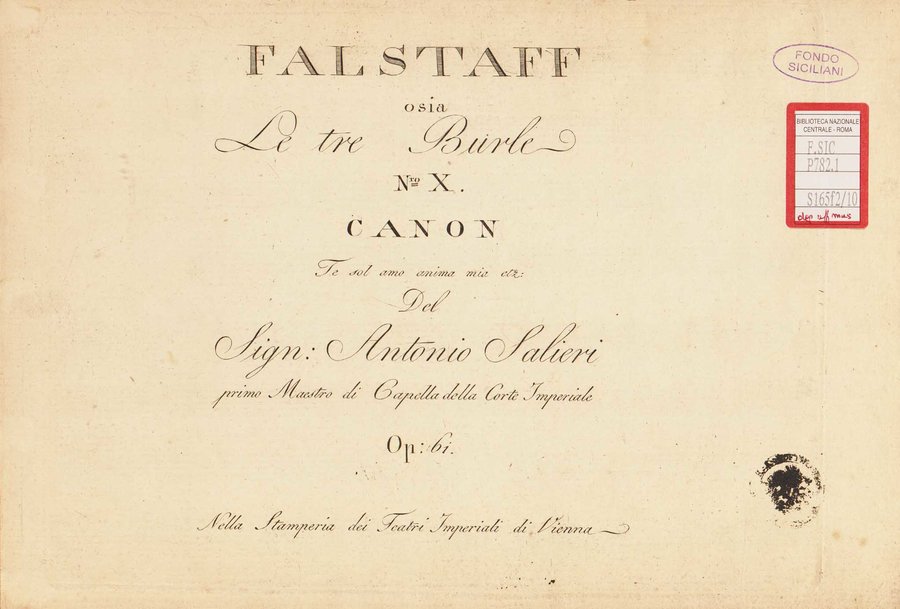 FALSTAFF
osia
Le tre Burle
Nro X.
CANON
Te sol amo anima mia etz:
Del
Sign: Antonio Salieri
primo Maestro di Capella della Corte Imperiale
Op: 61.
Nella Stamperia dei Teatri Imperiali di Vienna
FONDO
SICILIANI
BIBLIOTECA NAZIONALE
CENTRALE - ROMA
F.SIC
P782.1
S165f2/10